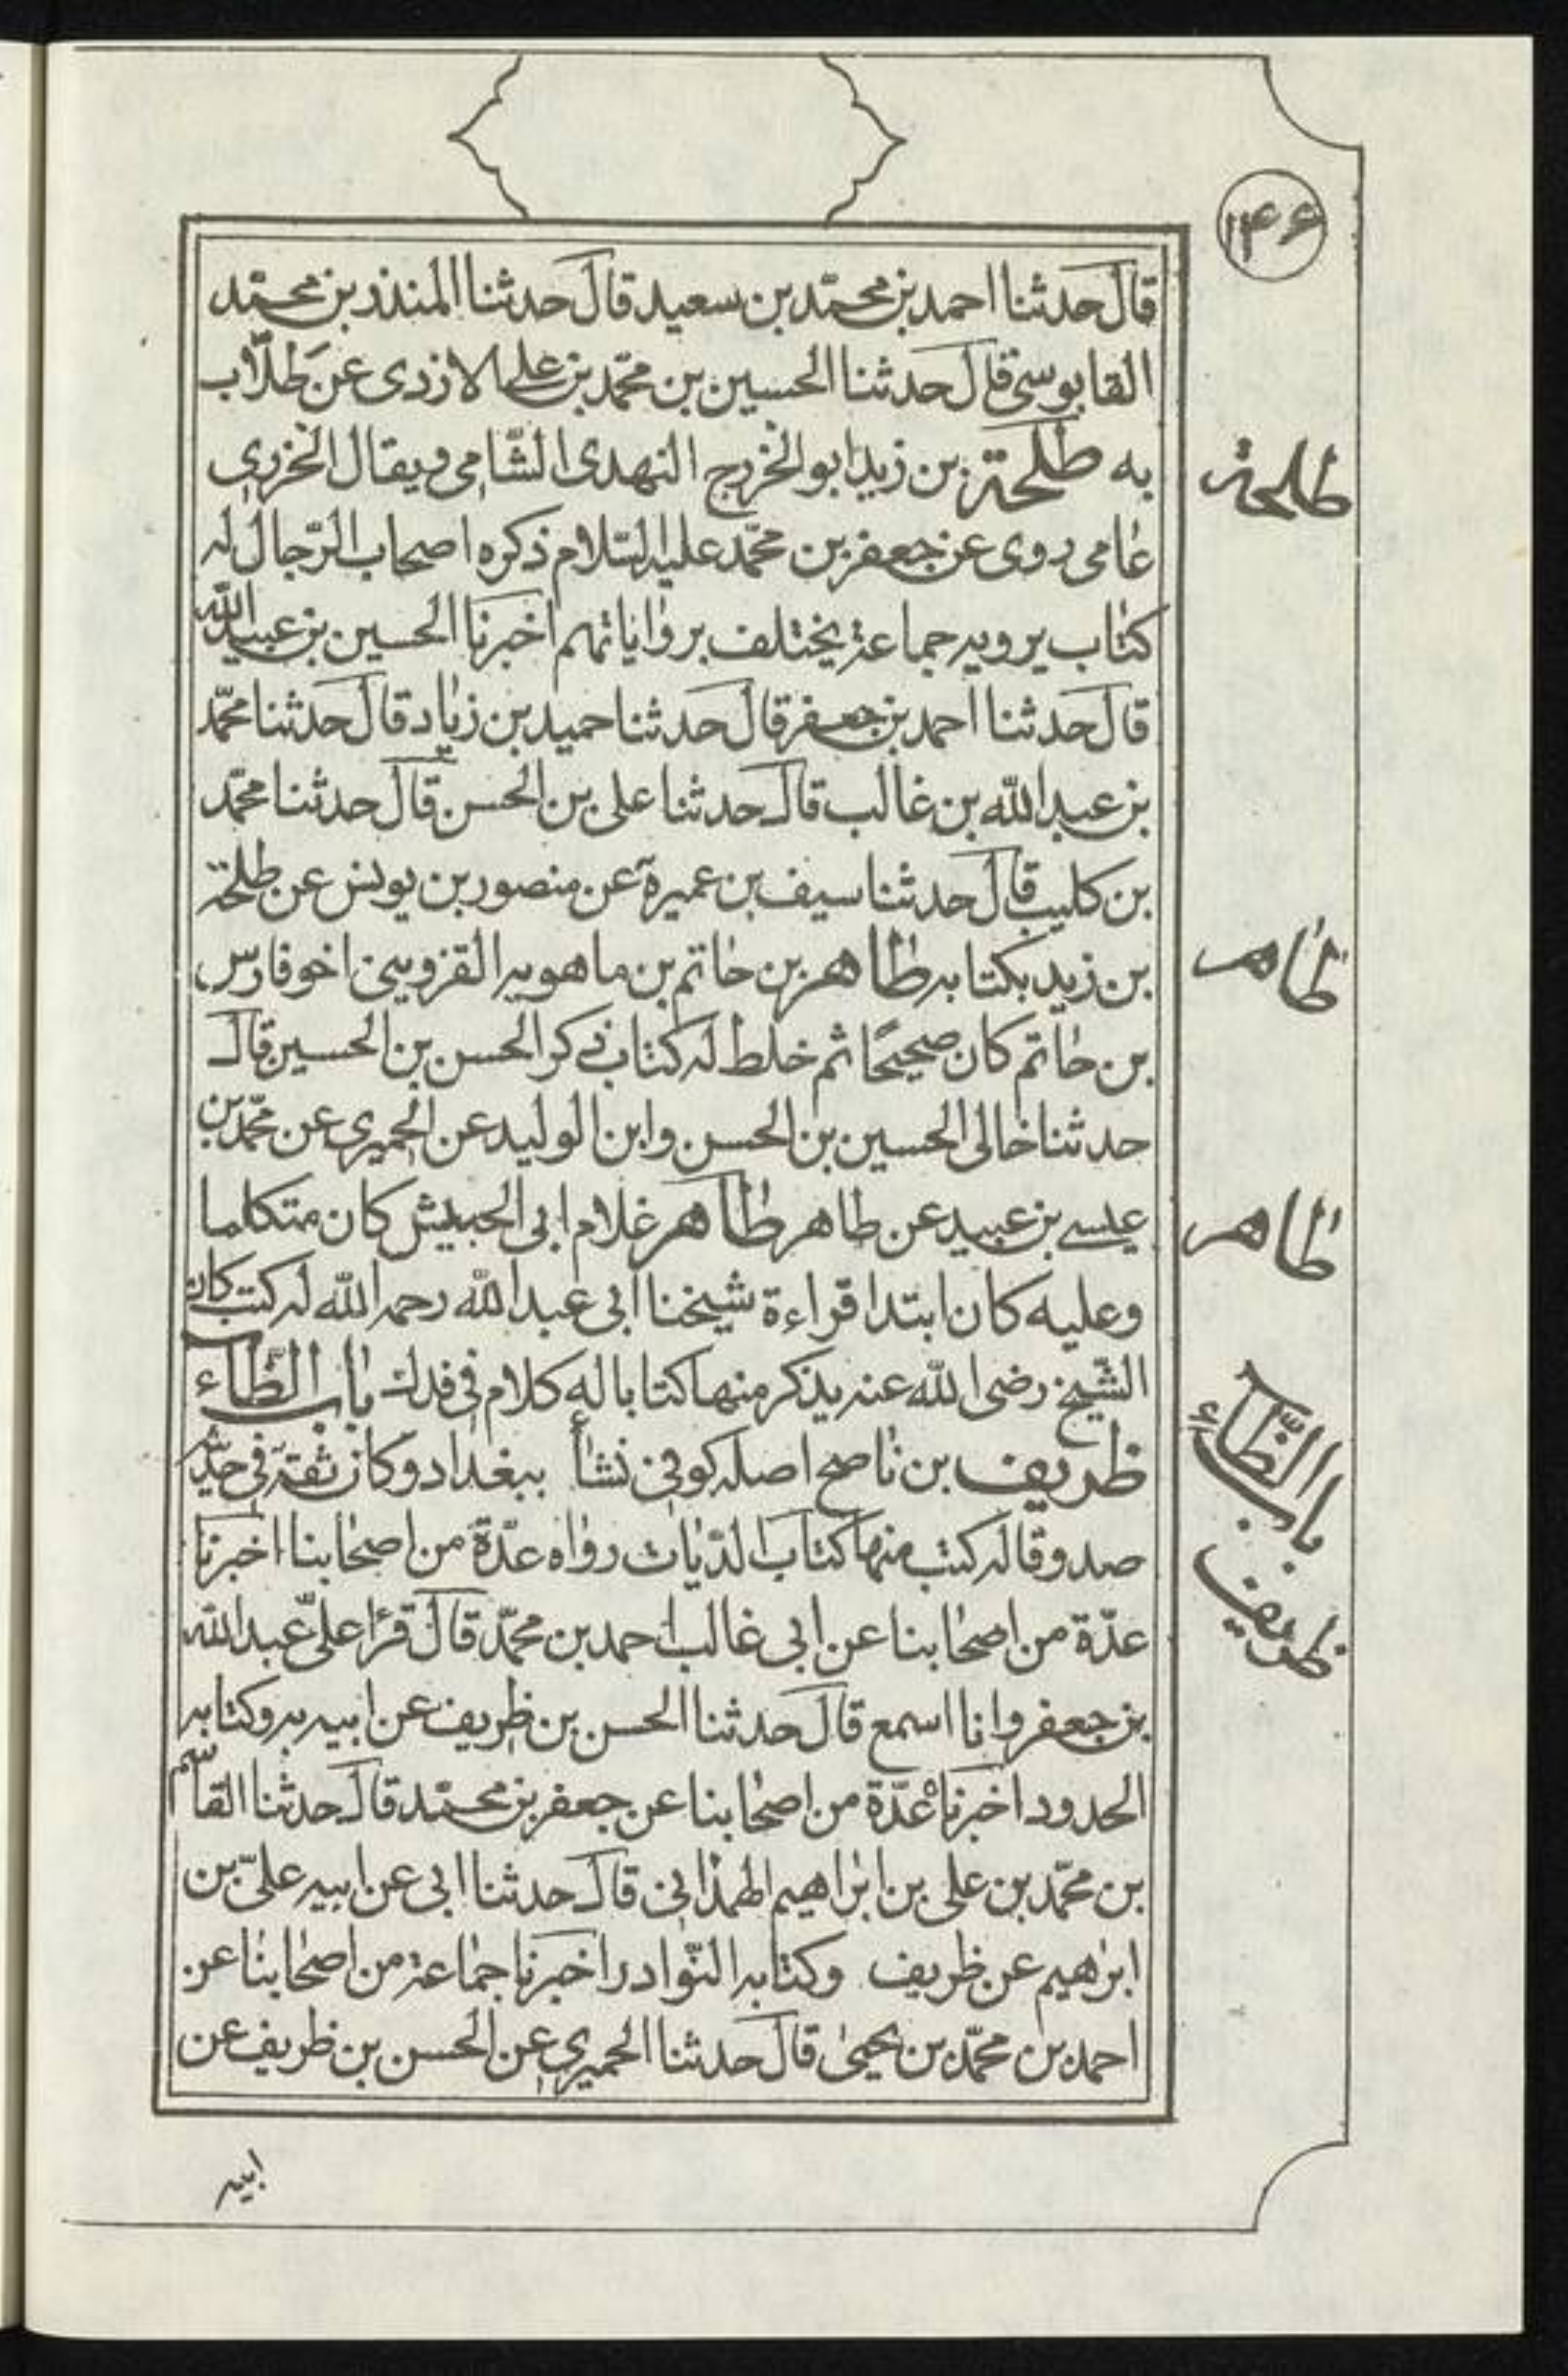 ۱۴۶
قال حدثنا احمد بن محمّد بن سعيد قال حدثنا المنذر بن محمّد
القابوسى قال حدثنا الحسين بن محمّد بن على الازدى عن طلّاب
به طلحة بن زيد ابو الخزرج النهدى الشّامى ويقال الخزرى
عامى روى عن جعفر بن محمّد عليه السّلام ذكره اصحاب الرّجال له
كتاب يرويه جماعة يختلف برواياتهم اخبرنا الحسين بن عبيدالله
قال حدثنا احمد بن جعفر قال حدثنا حميد بن زياد قال حدثنا محمّد
بن عبدالله بن غالب قال حدثنا على بن الحسن قال حدثنا محمّد
بن كليب قال حدثنا سيف بن عميرة عن منصور بن يونس عن طلحة
بن زيد بكتابه طاهر بن حاتم بن ماهويه القزوينى اخو فارس
بن حاتم كان صحيحًا ثم خلط له كتاب ذكر الحسن بن الحسين قال
حدثنا خالى الحسين بن الحسن وابن الوليد عن الحميرى عن محمّد بن
عيسى بن عبيد عن طاهر طاهر غلام ابى الحبيش كان متكلما
وعليه كان ابتدا قراءة شيخنا ابى عبدالله رحمه الله له كتب كان
الشّيخ رضى الله عنه يذكر منها كتابا له كلام فى فدك باب الظّاء
ظريف بن ناصح اصله كوفى نشأ ببغداد وكان ثقة فى حديثه
صدوقا له كتب منها كتاب الدّيات رواه عدّة من اصحابنا اخبرنا
عدّة من اصحابنا عن ابى غالب احمد بن محمّد قال قرأ علىّ عبدالله
بن جعفر وانا اسمع قال حدثنا الحسن بن ظريف عن ابيه به وكتابه
الحدود اخبرنا عدّة من اصحابنا عن جعفر بن محمّد قال حدثنا القاسم
بن محمّد بن على بن ابراهيم الهمذانى قال حدثنا ابى عن ابيه علىّ بن
ابرهيم عن ظريف وكتابه النّوادر اخبرنا جماعة من اصحابنا عن
احمد بن محمّد بن يحيى قال حدثنا الحميرى عن الحسن بن ظريف عن
طلحة
طاهر
طاهر
باب الظّاء
ظريف
ابيه